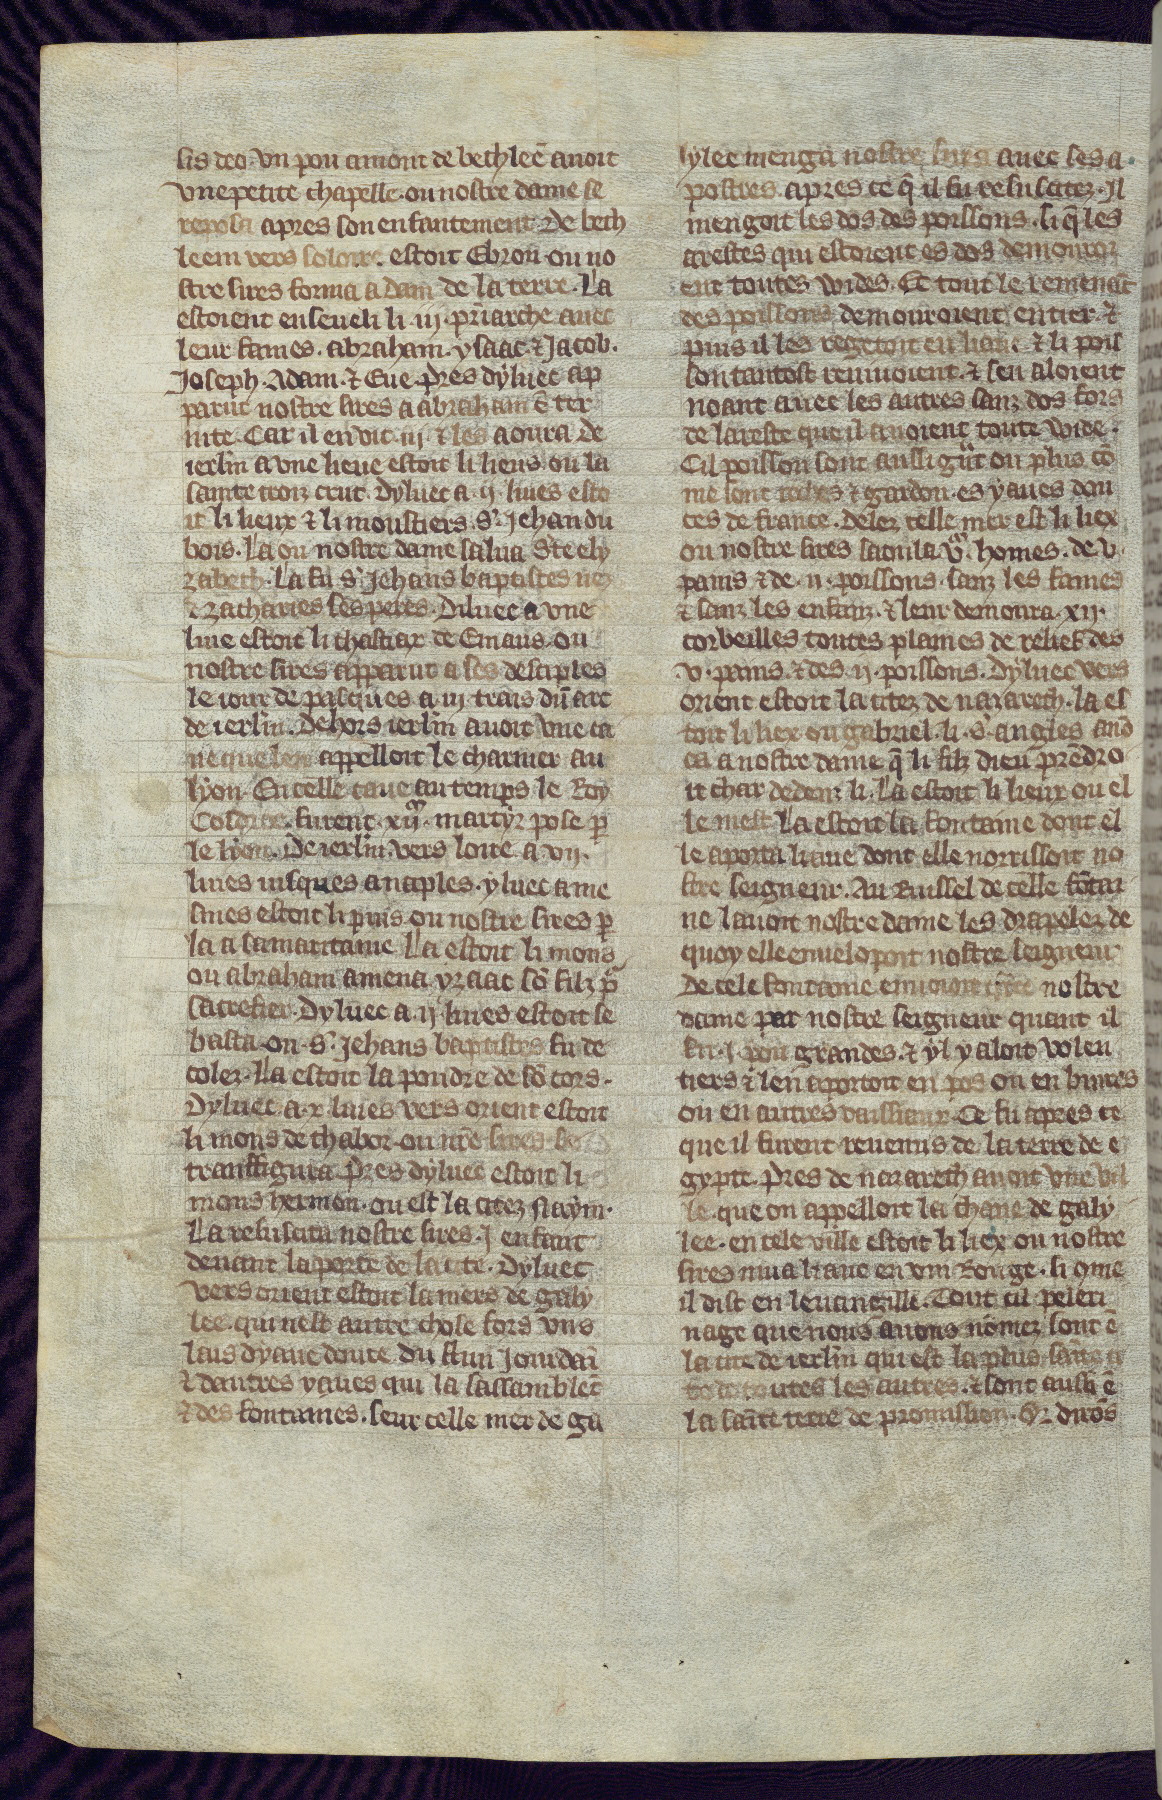 sis deo. vn pou amont de bethleē auoit
vne petite chapelle. ou nostre dame se
reposa apres son enfantement. De beth
leem vers soloire. estoit Ebron. ou no
stre sires forma adam de la terre. La
estoient enseueli li .iij. pr̄iarche auec
leur fames. abraham. ysaac. ⁊ Jacob.
Joseph. Adam. ⁊ Eue. Pres dyluec ap
parut nostre sires a abraham ē ter
nite. Car il en vit .iij. ⁊ les aoura. De
ierlm̄ a vne lieue estoit li lieus. ou la
sainte croiz crut. Dyluec a .ij. liues esto
it li lieux ⁊ li moustiers. S. Jehan du
bois. La ou nostre dame salua Ste ely
zabeth. La fu S. Jehans baptistes nez
⁊ zacharies ses peres. Diluec a vne
liue estoit li chastiax de Emaus. ou
nostre sires apparut a ses desciples
le iour de pasques a .iij. trais dū arc
de ierlm̄. Dehors ierlm̄ auoit vne ca
ue que len appelloit le charnier au
lyon. En celle caue au temps le Roy
Cosdroe. furent .xijᵐ. martyr pose p̄
le lyon. De ierlm̄. vers loire. a .vij.
liues iusques a naples. yluec a me
smes estoit li puis. ou nostre sires p̄
la a samaritaine La estoit li mons
ou abraham amena yzaac sō filz p̄
sacrefier. Dyluec a .ij. liues estoit se
basta. ou S. Jehans baptistes fu de
colez. La estoit la poudre de sō cors.
Dyluec a .x. luies vers orient estoit
li mons de thabor. ou nr̄e sires se
transfigura. Pres dyluec estoit li
mons hermon. ou est la citez Naym.
La resuscita nostre sires .J. enfant
deuant la porte de la cite. Dyluec
vers orient estoit la mers de galy
lee. qui nest autre chose fors vns
laus dyaue douce. du flun Jourdain
⁊ dautres yaues qui la sassamblēt
⁊ des fontaines. seur celle mer de ga
lylee menga nostre sires auec ses a
postres. apres ce q̄ il fu resuscitez. Il
mengoit les dos des poissons. si q̄ les
arestes qui estoient es dos demouror
ent toutes wides. Et tout le remenāt
des poissons demouroient entier. ⁊
puis il les regetoit en liaue. ⁊ li pois
son tantost reuiuoient. ⁊ sen aloient
noant auec les autres sanz dos fors
de lareste que il auoient toute wide.
Cil poisson sont aussi grāt ou plus cō
me sont roxes ⁊ gardon. es yaues dou
ces de france. Delez celle mer est li liex
ou nostre sires saoula .vᵐ. homes. de .v.
pains ⁊ de .ii. poissons. sanz les fames
⁊ sanz les enfanz. ⁊ leur demoura .xij.
corbeilles toutes plaines de relief des
.v. pains. ⁊ des .ij. poissons. Dyluec vers
orient estoit la citez de nazareth. la es
toit li liex ou gabriel. li .S. angles anō
ca a nostre dame q̄ li filz dieu prēdro
it char dedenz li. La estoit li lieux ou el
le mest La estoit la fontaine dont el
le aporta liaue dont elle norrissoit no
stre seigneur. Au Ruissel de celle fōtai
ne lauoit nostre dame les drapelez de
quoy elle enuelopoit nostre seigneur
De cele fontaine enuoioit qrre nostre
dame par nostre seigneur quant il
fu .j. pou grandes. ⁊ yl y aloit volen
tiers ⁊ len aportoit en pos ou en buires
ou en autres vaissiaux. Ce fu apres ce
que il furent reuenus de la terre de e
gypte. Pres de nazareth auoit vne vil
le. que on appelloit la chane de galy
lee. en cele ville estoit li liex ou nostre
sires mua liaue en vin Rouge. si 9me
il dist en leuangille. Tout cil peleri
nage que nous auons nōmez sont ē
la cite de ierlm̄ qui est la plus sāite ci
te de toutes les autres. ⁊ sont aussi ē
la saīte terre de promission. Or dirōs